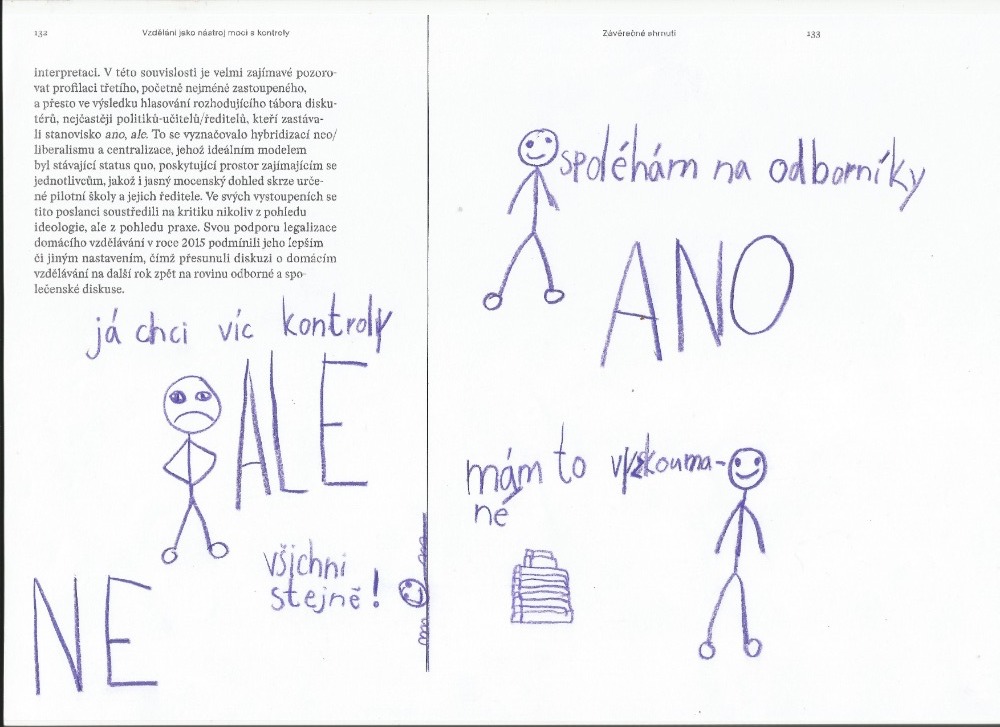 132
Vzdělání jako nástroj moci a kontroly
interpretaci. V této souvislosti je velmi zajímavé pozoro-
vat profilaci třetího, početně nejméně zastoupeného,
a přesto ve výsledku hlasování rozhodujícího tábora disku-
térů, nejčastěji politiků-učitelů/ředitelů, kteří zastáva-
li stanovisko ano, ale. To se vyznačovalo hybridizací neo/
liberalismu a centralizace, jehož ideálním modelem
byl stávající status quo, poskytující prostor zajímajícím se
jednotlivcům, jakož i jasný mocenský dohled skrze urče-
né pilotní školy a jejich ředitele. Ve svých vystoupeních se
tito poslanci soustředili na kritiku nikoliv z pohledu
ideologie, ale z pohledu praxe. Svou podporu legalizace
domácího vzdělávání v roce 2015 podmínili jeho lepším
či jiným nastavením, čímž přesunuli diskuzi o domácím
vzdělávání na další rok zpět na rovinu odborné a spo-
lečenské diskuse.
já chci víc kontroly
ALE
všichni
stejně!
NE
Závěrečné shrnutí
133
spoléhám na odborníky
ANO
mám to vyzkouma-
né